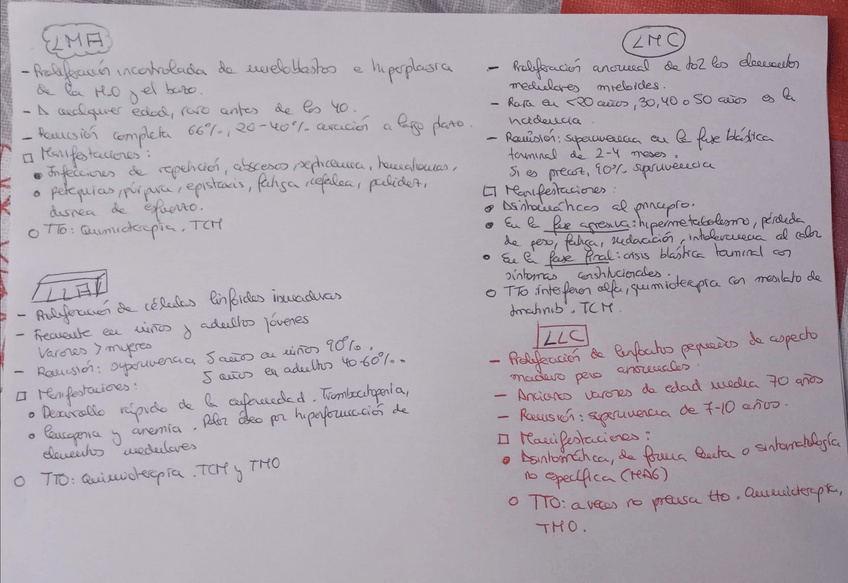 LMA
- Proliferación incontrolada de mieloblastos e hiperplasia
de la MO y el bazo.
- A cualquier edad, raro antes de los 40.
- Remisión completa 66%, 20-40% curación a largo plazo.
□ Manifestaciones:
• Infecciones de repetición, abscesos, septicemia, hematomas,
• petequias, púrpura, epistaxis, fatiga, cefalea, palidez,
disnea de esfuerzo.
○ TTO: Quimioterapia, TCM
LLA
- Proliferación de células linfoides inmaduras
- Frecuente en niños y adultos jóvenes
Varones > mujeres
- Remisión: supervivencia 5 años en niños 90%.
5 años en adultos 40-60%.
□ Manifestaciones:
• Desarrollo rápido de la enfermedad. Trombocitopenia,
• leucopenia y anemia. Dolor óseo por hiperformación de
elementos medulares
○ TTO: Quimioterapia. TCM y TMO
LMC
- Proliferación anormal de to2 los elementos
medulares mieloides.
- Rara en <20 años, 30, 40 o 50 años es la
incidencia.
- Remisión: supervivencia en la fase blástica
terminal de 2-4 meses.
Si es precoz, 90% supervivencia
□ Manifestaciones:
• Asintomáticos al principio.
• En la fase agresiva: hipermetabolismo, pérdida
de peso, fatiga, sudoración, intolerancia al calor
• En la fase final: crisis blástica terminal con
síntomas constitucionales.
○ TTO interferon alfa, quimioterapia con mesilato de
imatinib. TCM.
LLC
- Proliferación de linfocitos pequeños de aspecto
maduro pero anormales.
- Ancianos varones de edad media 70 años
- Remisión: supervivencia de 7-10 años.
□ Manifestaciones:
• Asintomática, de forma lenta o sintomatología
no específica (MAG)
○ TTO: a veces no precisa tto. Quimioterapia,
TMO.